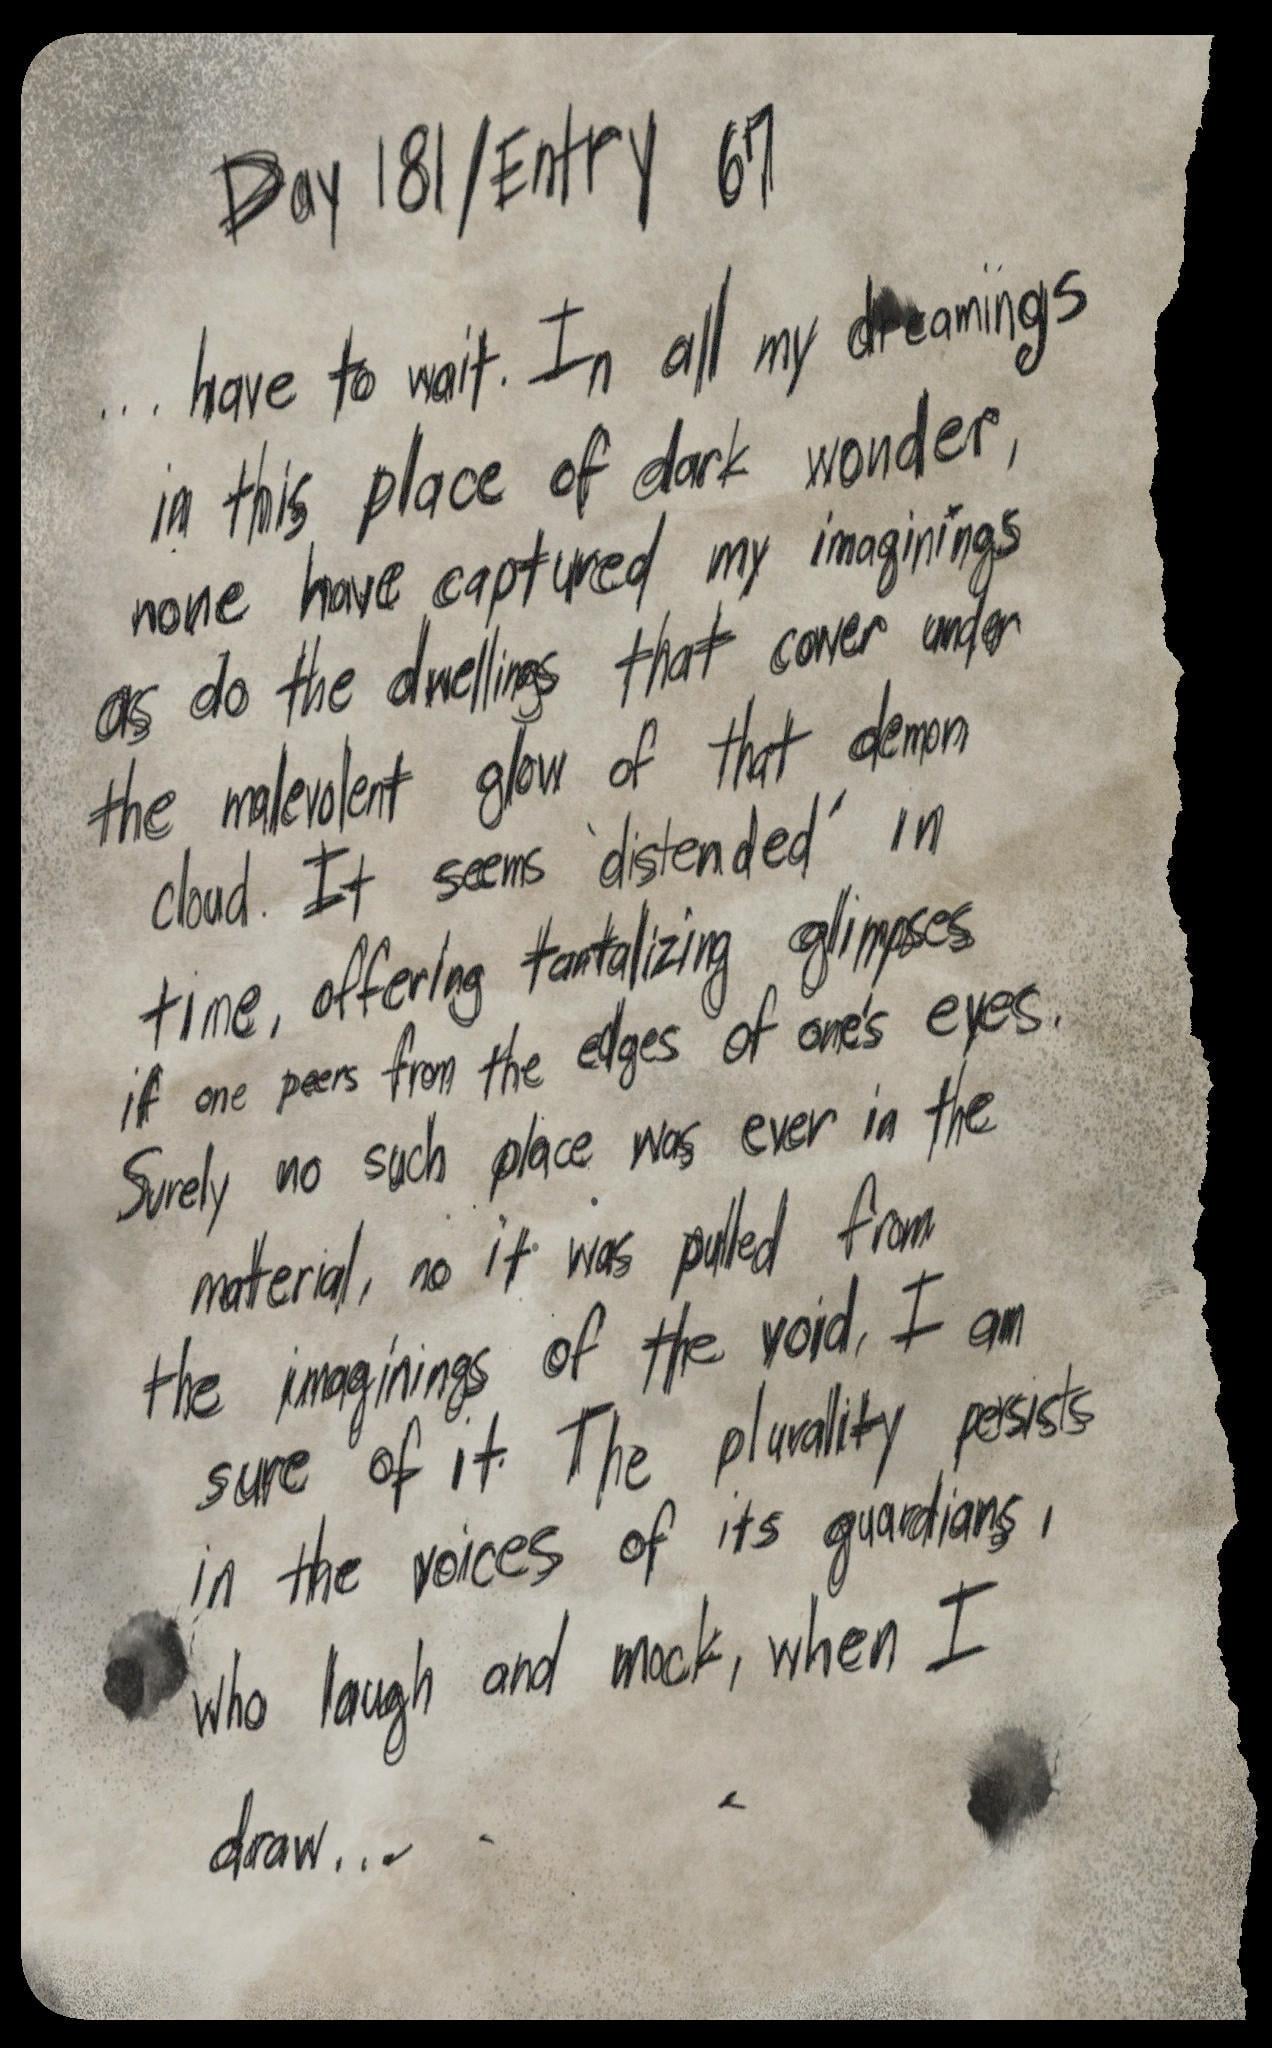 Day 181/Entry 67
... have to wait. In all my dreamings
in this place of dark wonder,
none have captured my imaginings
as do the dwellings that cower under
the malevolent glow of that demon
cloud. It seems 'distended' in
time, offering tantalizing glimpses
if one peers from the edges of one's eyes.
Surely no such place was ever in the
material, no it was pulled from
the imaginings of the void, I am
sure of it. The plurality persists
in the voices of its guardians,
who laugh and mock, when I
draw...